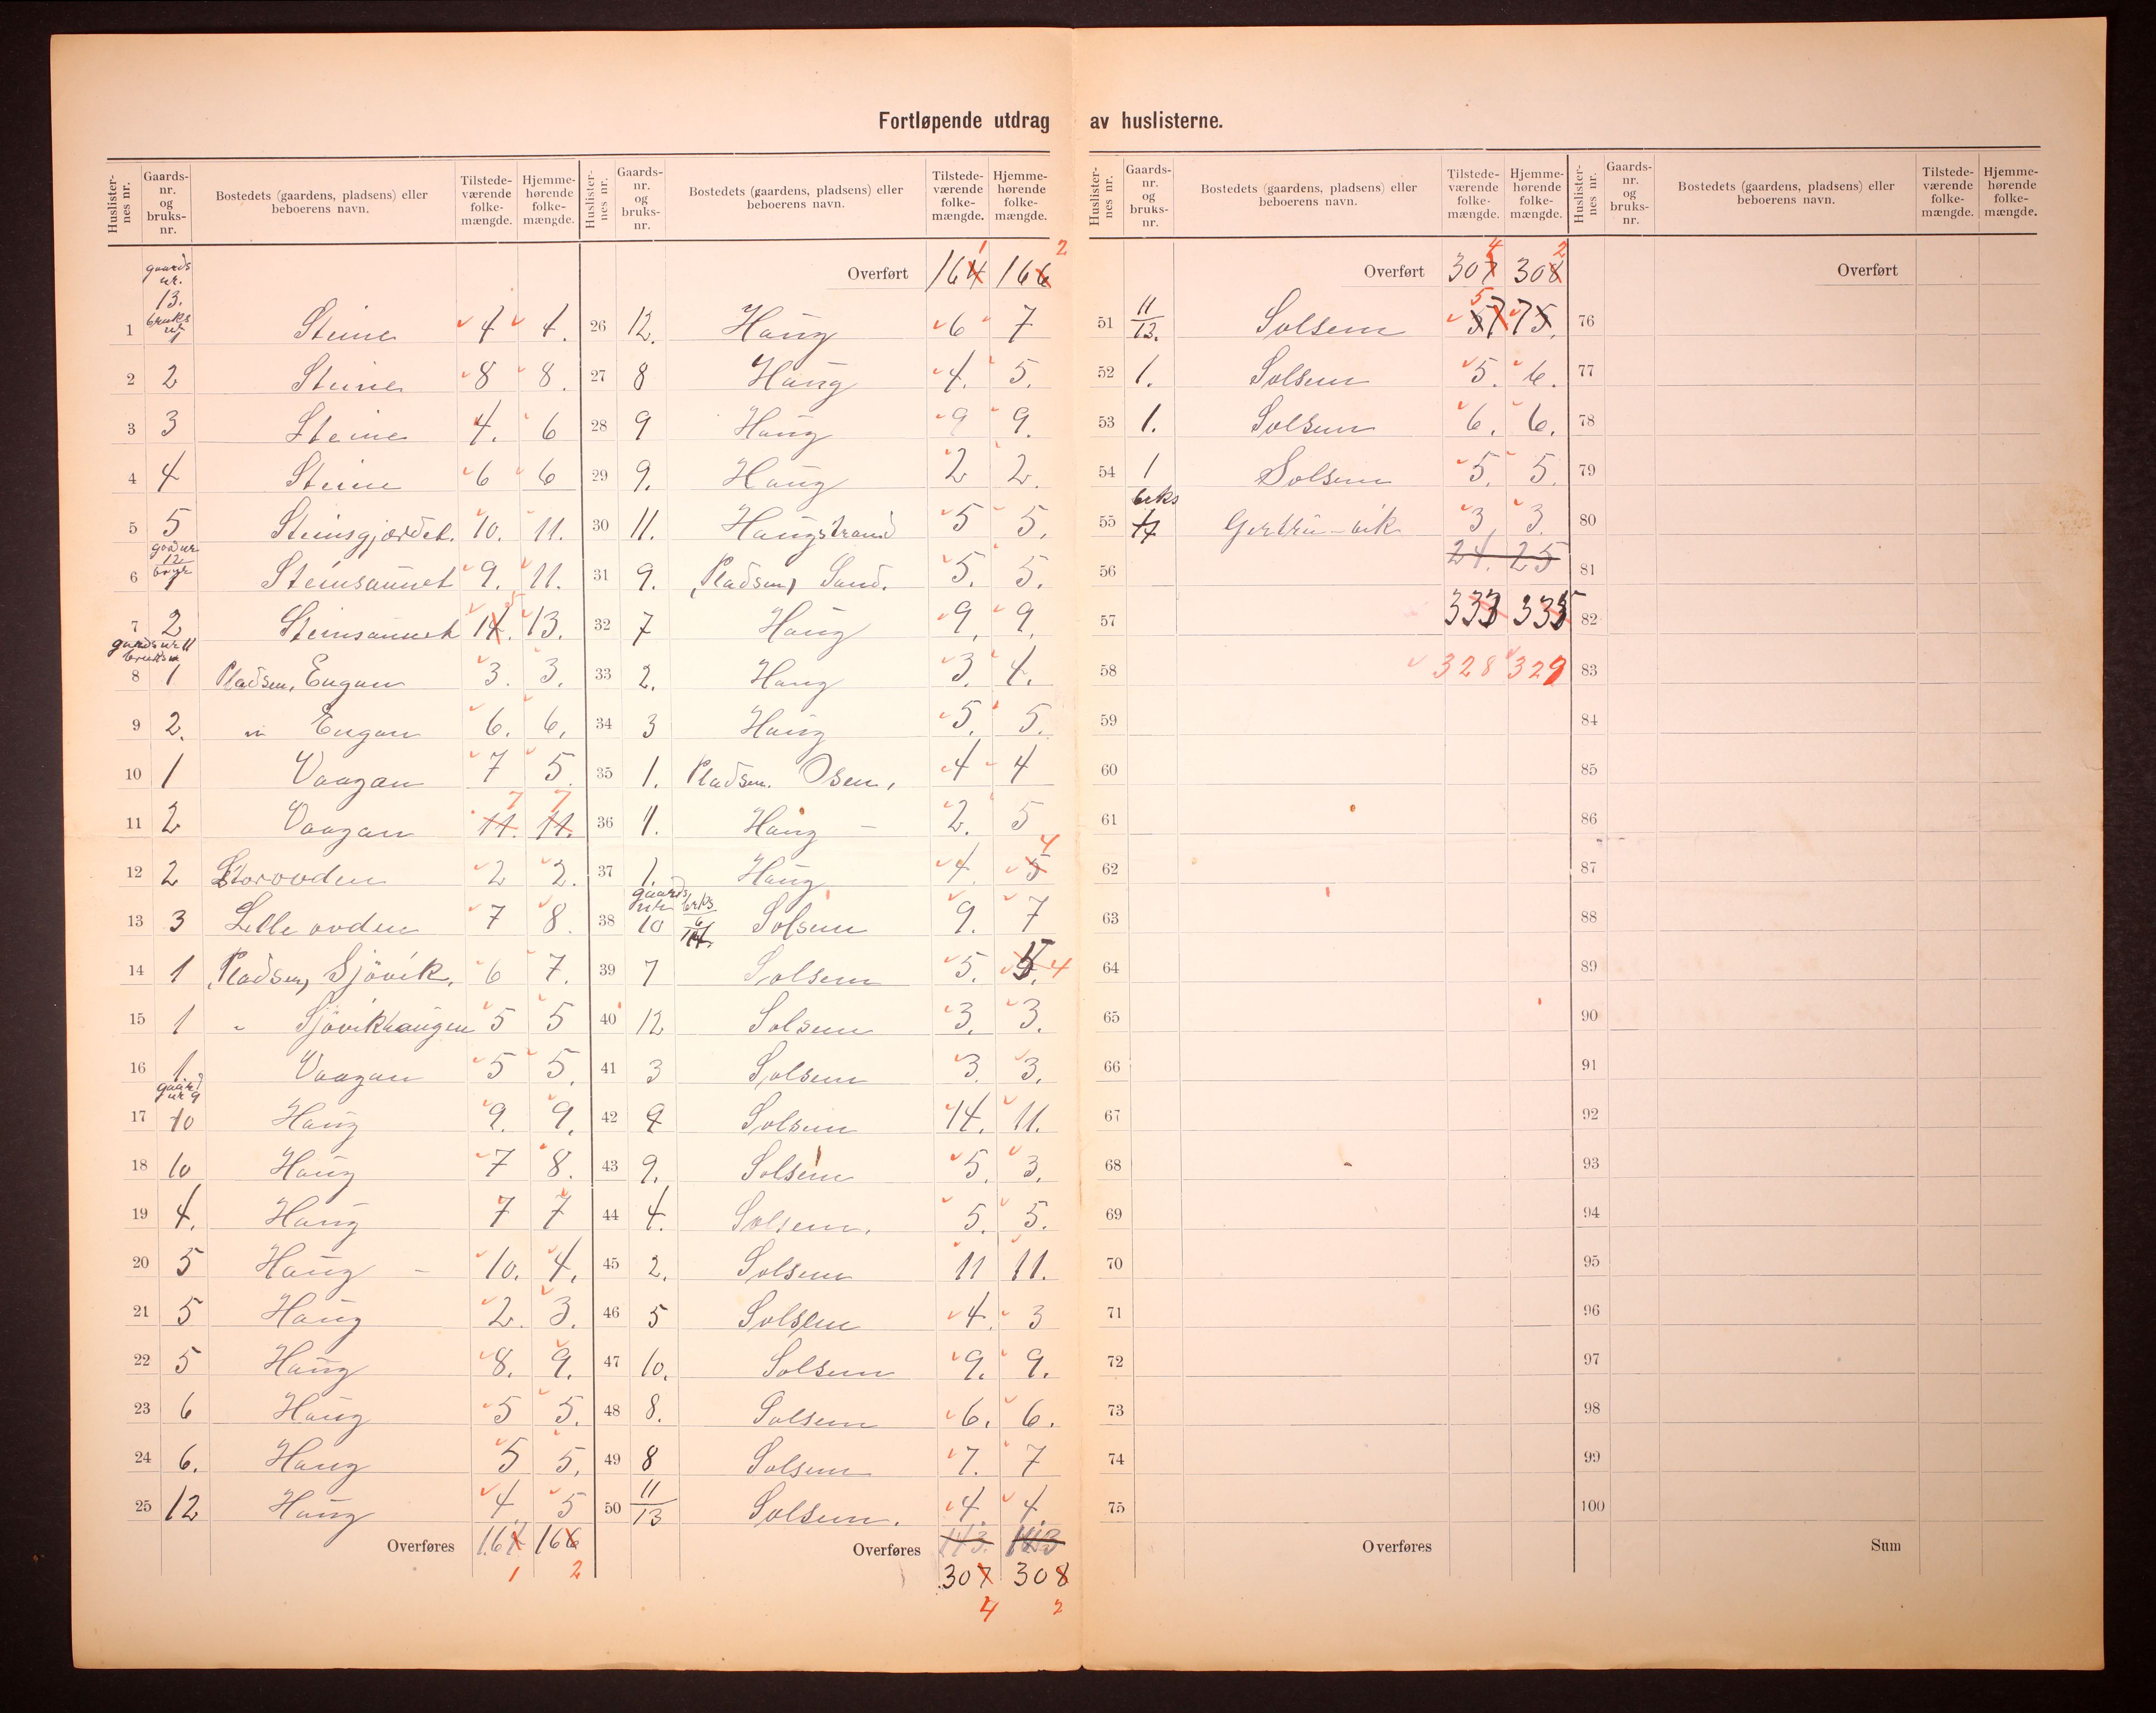 Fortløpende utdrag av huslisterne.
Huslister-nes nr. Gaards-nr. og bruks-nr. Bostedets (gaardens, pladsens) eller beboerens navn. Tilstede-værende folke-mængde. Hjemme-hørende folke-mængde.
gaards nr. 13. bruks nr
1 1 Steine 4 4.
2 2 Steine 8 8.
3 3 Steine 4. 6
4 4 Steine 6 6
5 5 Steinsgjærdet. 10. 11.
gaards nr 12 br nr
6 1 Steinsaunet 9. 11.
7 2 Steinsaunet 14. 5 13.
gaards nr 11 bruks nr
8 1 Pladsen, Engan 3. 3.
9 2. " Engan 6. 6.
10 1 Vaagan 7 5
11 2 Vaagan 11. 7 11. 7
12 2 Storodden 2 2.
13 3 Lilleodden 7 8.
14 1 Pladsen, Sjövik. 6 7.
15 1 " Sjövikhaugen 5 5
16 1. Vaagan 5 5.
gaard nr 9
17 10 Haug 9. 9.
18 10 Haug 7 8.
19 4. Haug 7 7
20 5 Haug 10. 4.
21 5 Haug 2. 3.
22 5 Haug 8. 9.
23 6 Haug 5 5.
24 6. Haug 5 5.
25 12 Haug 4. 5
Overføres 164 166
1 2
Huslister-nes nr. Gaards-nr. og bruks-nr. Bostedets (gaardens, pladsens) eller beboerens navn. Tilstede-værende folke-mængde. Hjemme-hørende folke-mængde.
Overført 164 1 166 2
26 12. Haug 6 7
27 8 Haug 4. 5.
28 9 Haug 9 9.
29 9. Haug 2 2.
30 11. Haugstrand 5 5.
31 9. Pladsen, Sand. 5. 5.
32 7 Haug 9. 9.
33 2. Haug 3. 4.
34 3 Haug 5. 5.
35 1. Pladsen. Osen, 4 4
36 11. Haug 2. 5
37 1. Haug 4. 5 4
gaards nr brks
38 10 6 Solsem 9. 7
39 7 Solsem 5. 5. 4
40 12 Solsem 3. 3.
41 3 Solsem 3. 3.
42 9 Solsem 14. 11.
43 9. Solsem 5. 3.
44 4. Solsem. 5. 5.
45 2. Solsem 11 11.
46 5 Solsem 4. 3
47 10. Solsem 9. 9.
48 8. Solsem 6. 6.
49 8 Solsem 7. 7
50 11/13 Solsem. 4. 4.
Overføres 143. 143
307 308
4 2
Huslister-nes nr. Gaards-nr. og bruks-nr. Bostedets (gaardens, pladsens) eller beboerens navn. Tilstede-værende folke-mængde. Hjemme-hørende folke-mængde.
Overført 307 4 308 2
51 11/13. Solsem 5 7 7
52 1. Solsem 5. 6.
53 1. Solsem 6. 6.
54 1 Solsem 5. 5.
brks
55 14 Gertru-vik 3. 3.
56 24. 25
57 333 333
58 328 329
59
60
61
62
63
64
65
66
67
68
69
70
71
72
73
74
75
Overføres
Huslister-nes nr. Gaards-nr. og bruks-nr. Bostedets (gaardens, pladsens) eller beboerens navn. Tilstede-værende folke-mængde. Hjemme-hørende folke-mængde.
Overført
76
77
78
79
80
81
82
83
84
85
86
87
88
89
90
91
92
93
94
95
96
97
98
99
100
Sum